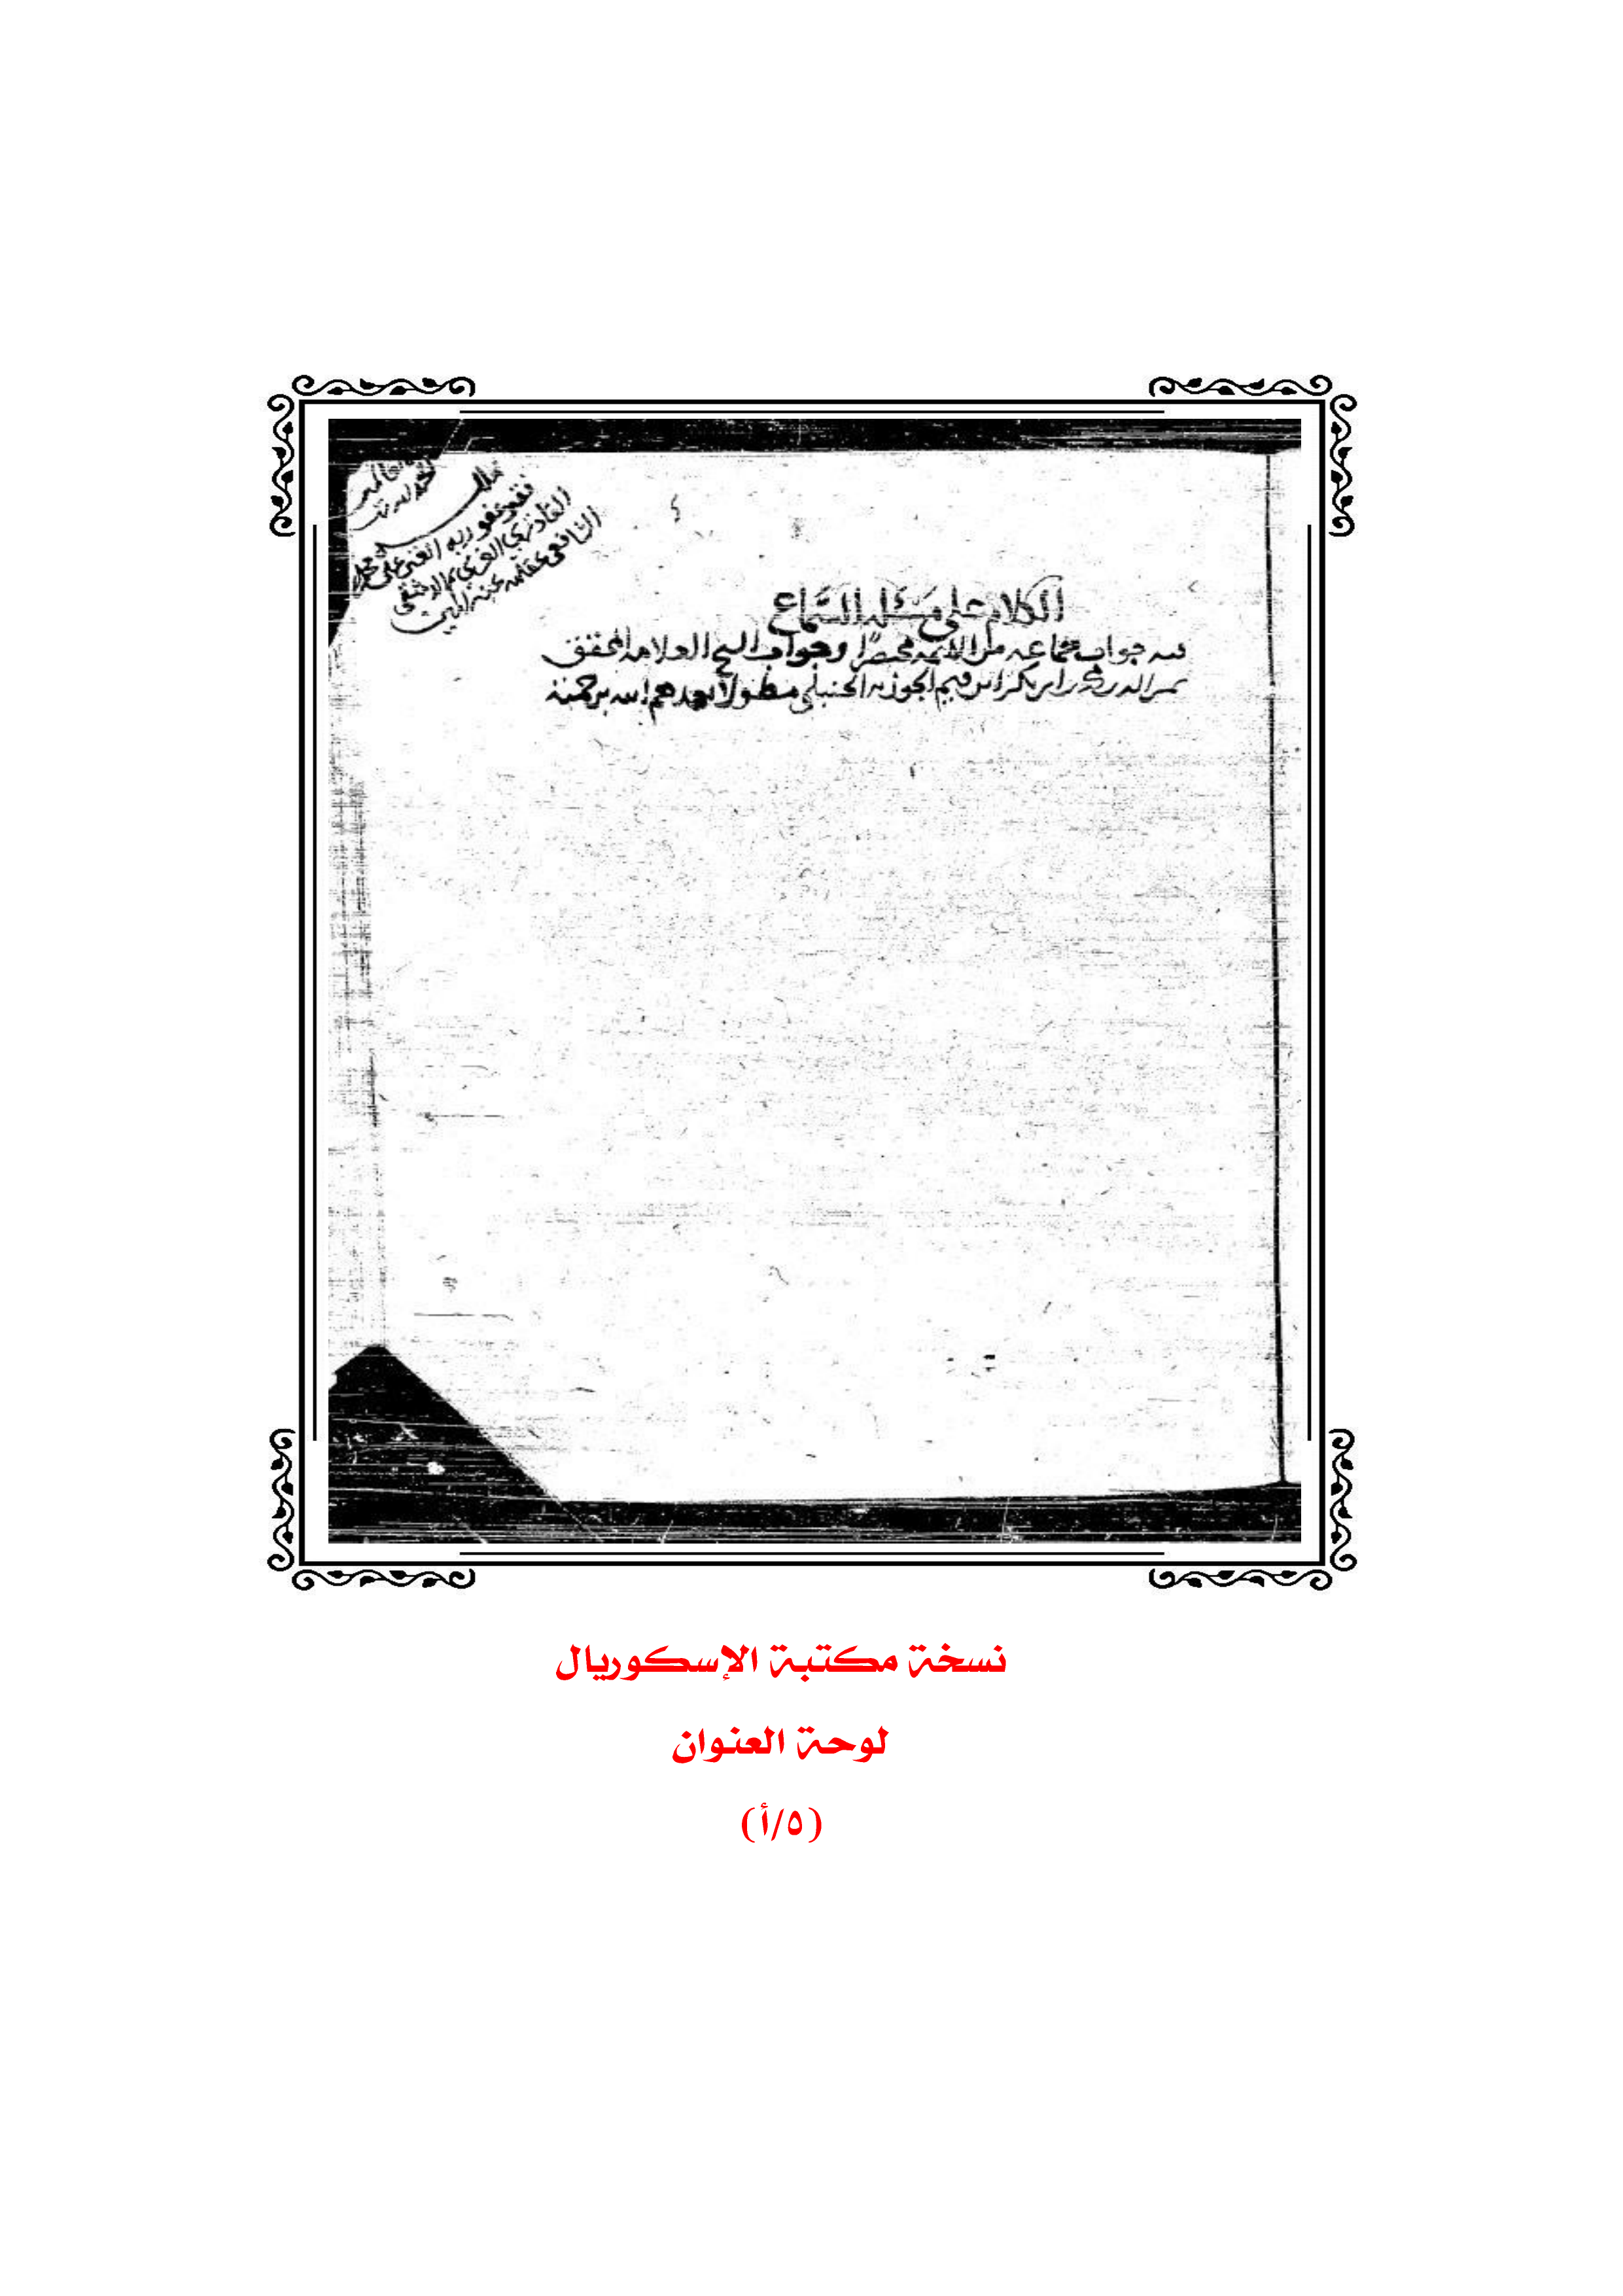 الكلام على مسئلة السماع
فيه جواب جماعة من الائمة مختصرا وجواب الشيخ العلامة المحقق
شمس الدين محمد ابن ابي بكر ابن قيم الجوزية الحنبلي مطولا تغمدهم الله برحمته
فقير عفو ربه الغني علي
الشافعي عامله
نسخة مكتبة الإسكوريال
لوحة العنوان
(٥/أ)